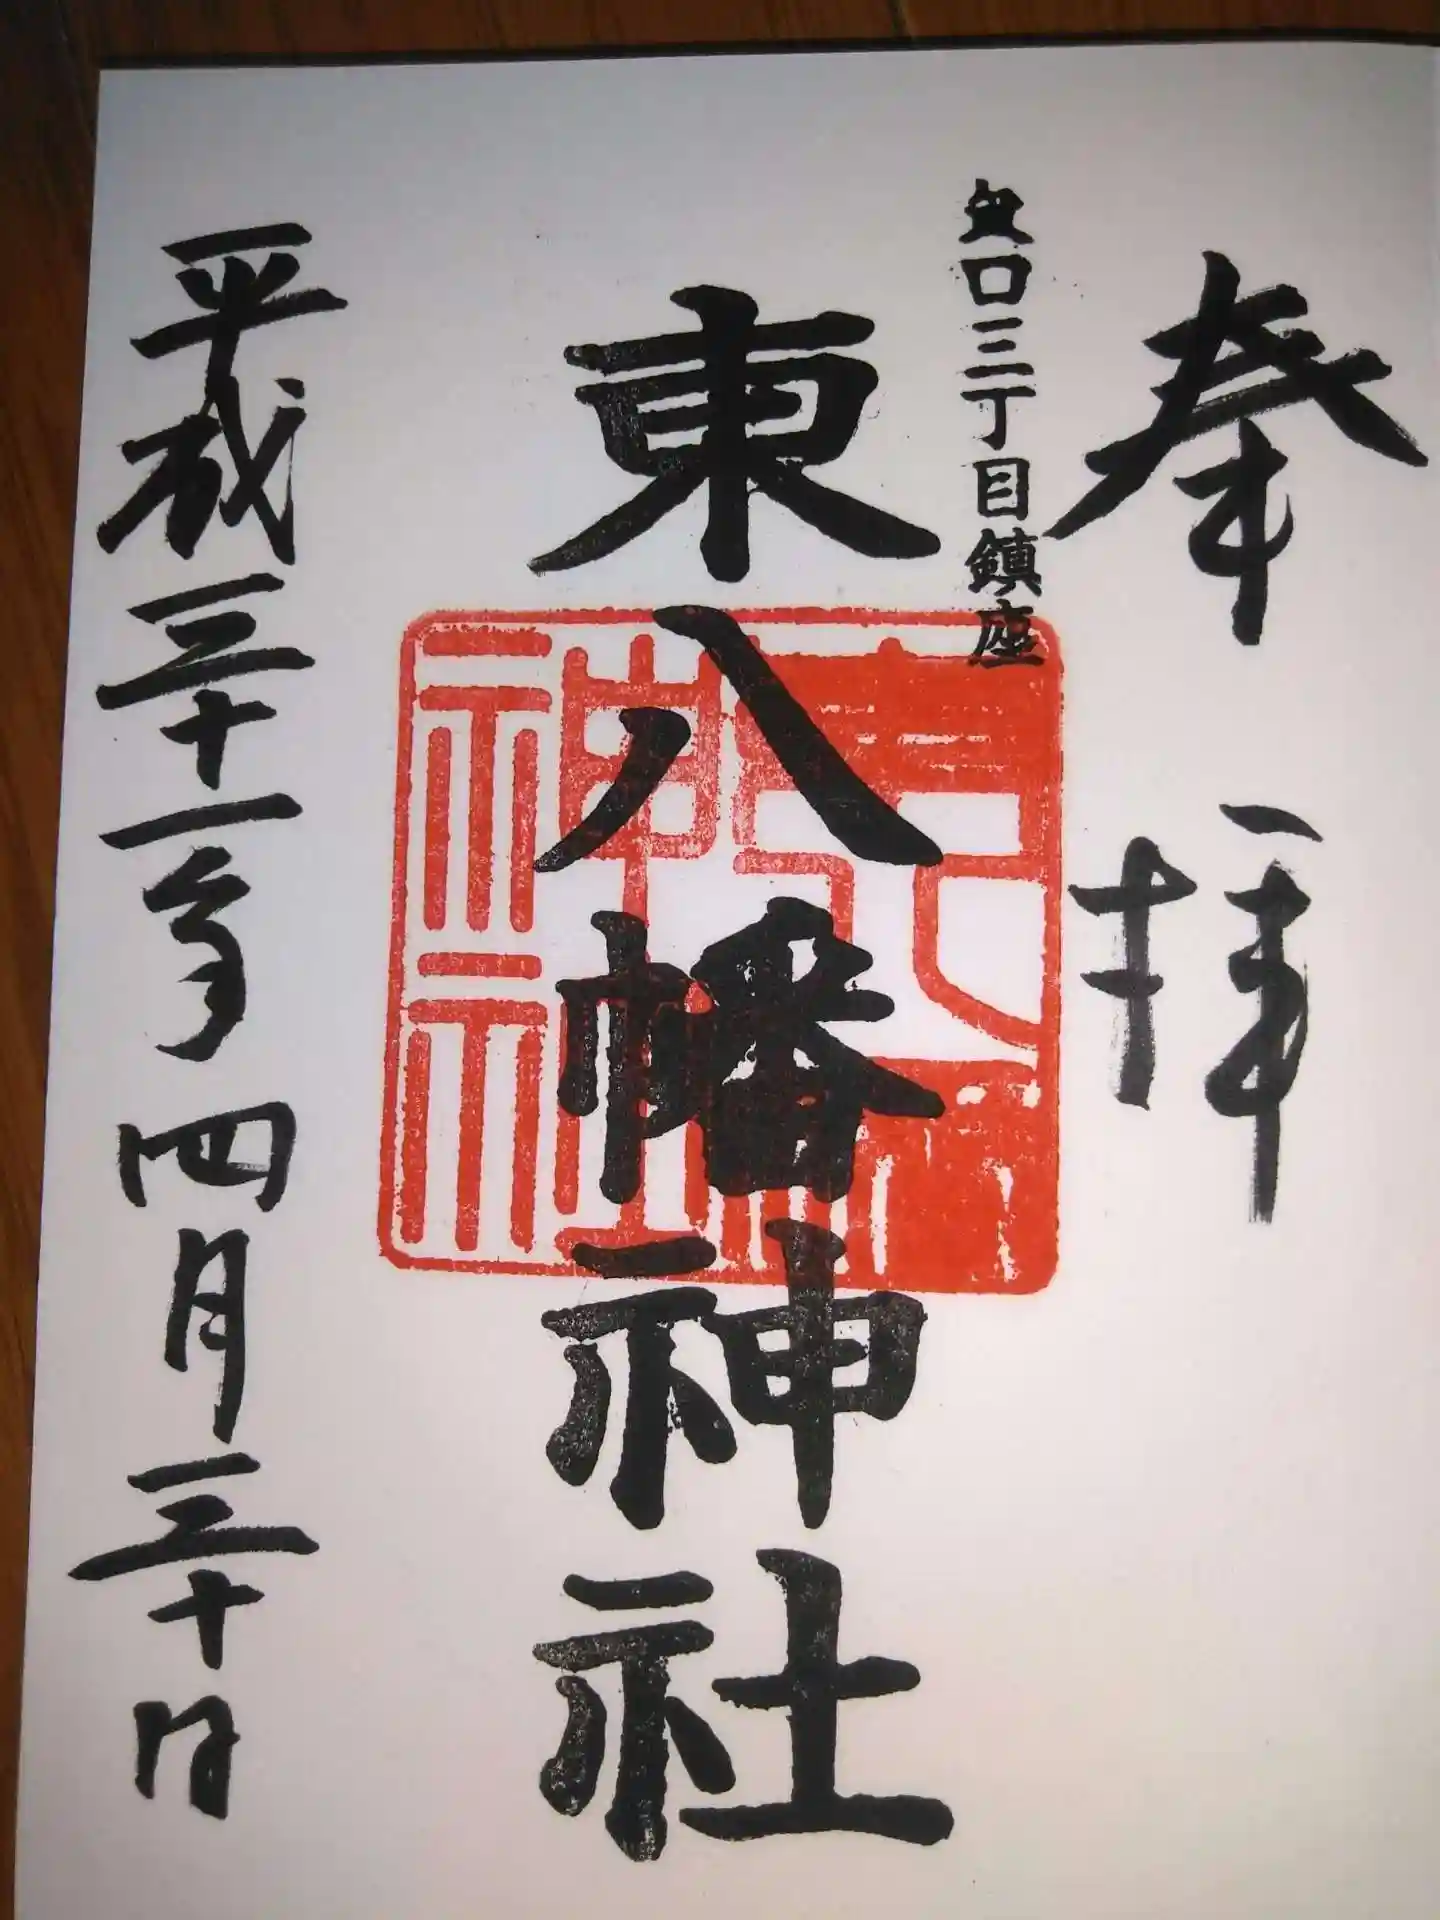 奉拝
矢口三丁目鎮座
東八幡神社
神社
平成三十一年四月三十日